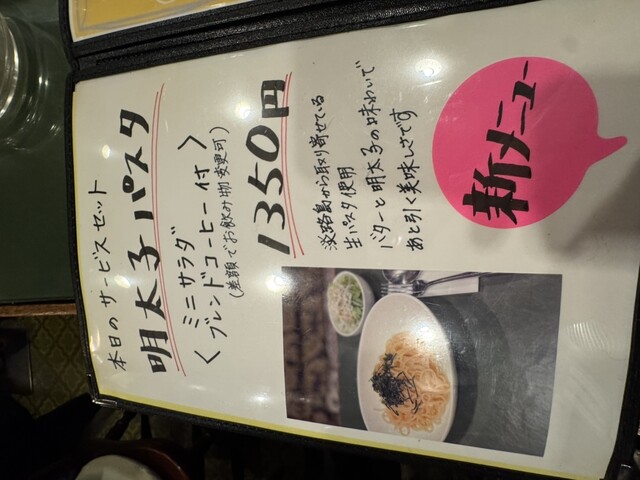 本日のサービスセット
明太子パスタ
〈ミニサラダ
ブレンドコーヒー付〉
(差額でお飲み物変更可)
1350円
淡路島から取り寄せている
生パスタ使用
バターと明太子の味わいで
あと引く美味しさです
新メニュー